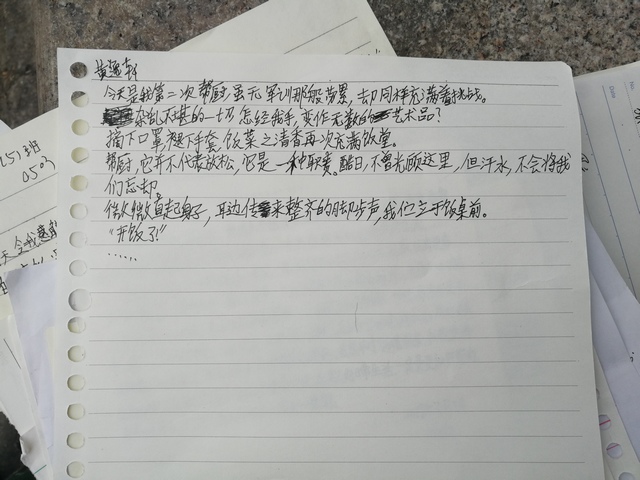 黄逸轩
今天是我第二次帮厨虽无军训那般劳累,却同样充满着挑战。
杂乱不堪的一切怎经我手,变作无数的艺术品?
摘下口罩,褪下手套,饭菜之清香再次充满饭堂。
帮厨,它并不代表放松,它是一种职责。醋日,不曾光顾这里,但汗水,不会将我
们忘却。
微微直起身子,耳边传来整齐的脚步声,我伫立于饭桌前。
“开饭了!”
……
(5)班
0503